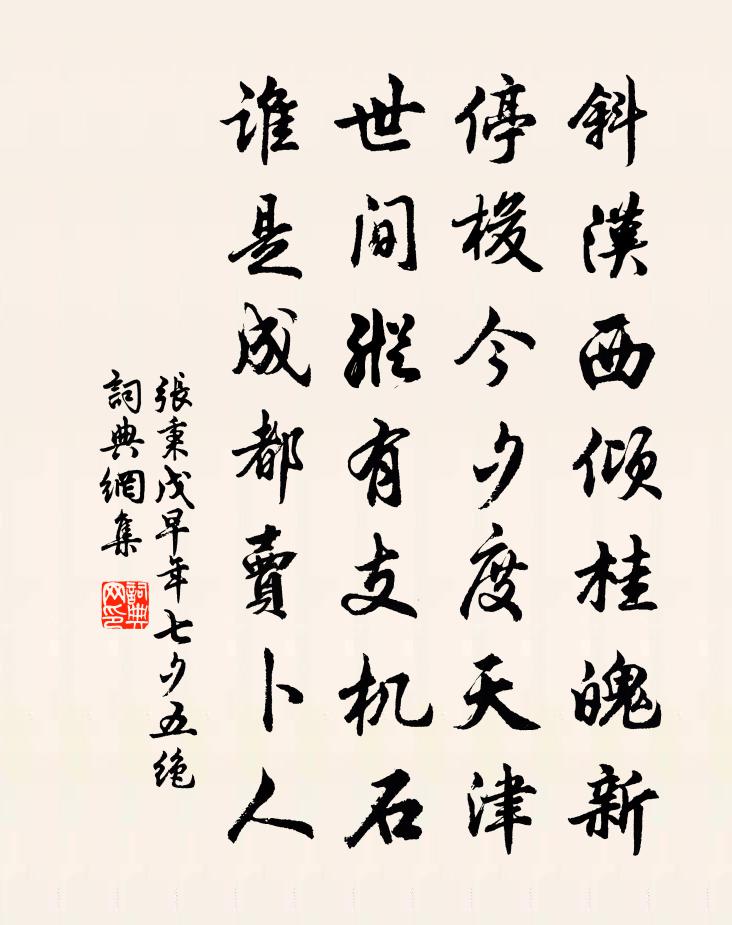 斜漢西傾桂魄新
停梭今夕度天津
世間縱有支机石
谁是成都賣卜人
張秉戊早年七夕五绝
詞典網集
詞典网印